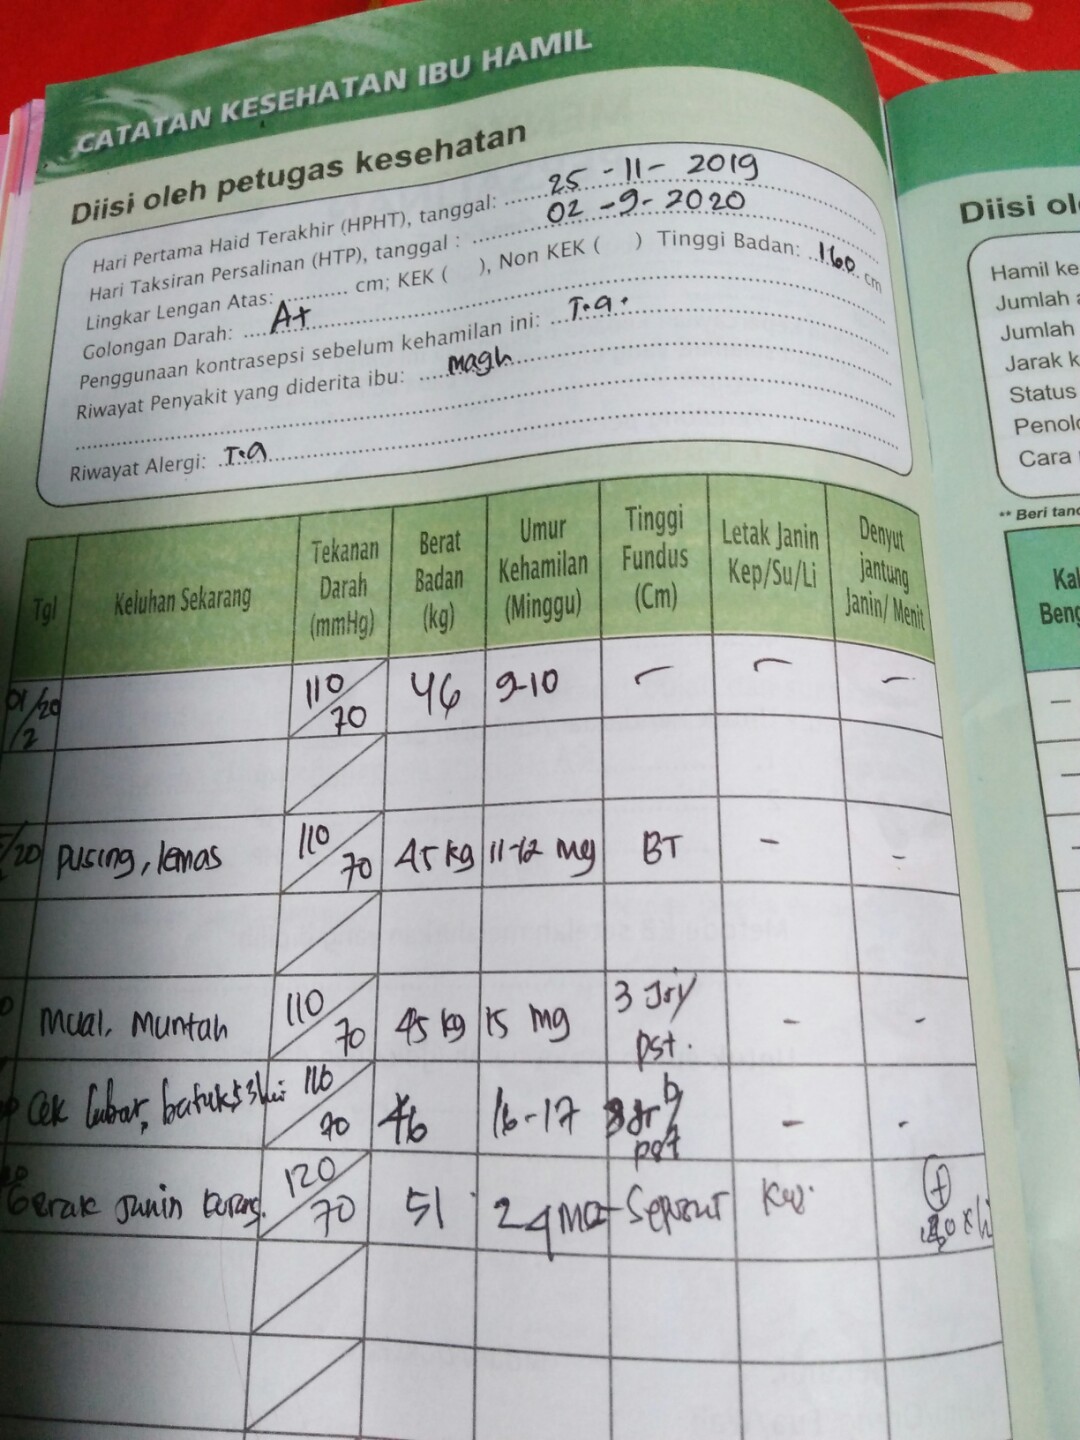 CATATAN KESEHATAN IBU HAMIL
Diisi oleh petugas kesehatan
Hari Pertama Haid Terakhir (HPHT), tanggal: 25 - 11 - 2019
Hari Taksiran Persalinan (HTP), tanggal : 02 - 9 - 2020
Lingkar Lengan Atas: ............ cm; KEK ( ), Non KEK ( ) Tinggi Badan: 160 cm
Golongan Darah: A+
Penggunaan kontrasepsi sebelum kehamilan ini: T.a.
Riwayat Penyakit yang diderita ibu: magh
Riwayat Alergi: T.a
Tgl Keluhan Sekarang Tekanan Darah (mmHg) Berat Badan (kg) Umur Kehamilan (Minggu) Tinggi Fundus (Cm) Letak Janin Kep/Su/Li Denyut jantung Janin/ Menit
01/20 /2 110/70 46 9-10 - - -
/20 Pusing, lemas 110/70 45 kg 11-12 mg BT - -
Mual, Muntah 110/70 45 kg 15 mg 3 Jry pst. - -
Cek batuk 110/70 46 16-17 - -
Gerak Janin 120/70 51 24
Diisi ol
Hamil ke
Jumlah a
Jumlah
Jarak k
Status
Penolo
Cara
** Beri tand
Kak
Beng